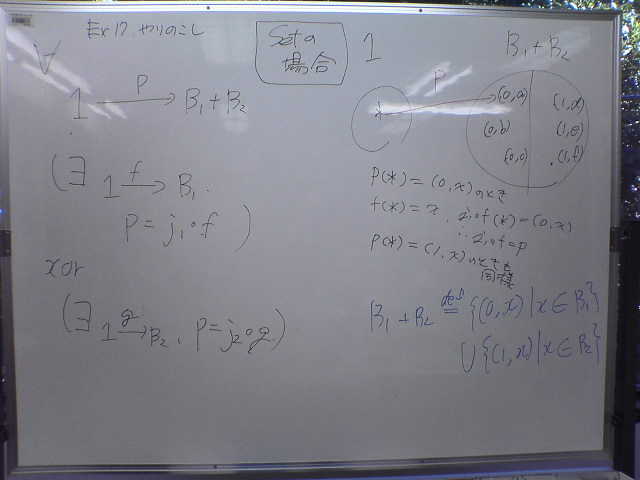 Ex 17. やりのこし
∀
1 —P→ B₁+B₂
(∃ 1 —f→ B₁.
P = j₁∘f )
xor
(∃ 1 —g→ B₂, P = j₂∘g.)
Setの
場合
1
B₁+B₂
P
*
(0,a)
(0,b)
(0,c)
(1,d)
(1,e)
(1,f)
P(*) = (0,x) のとき
f(*) = x. j₁∘f(*) = (0,x)
∴ j₁∘f = p
P(*) = (1,x) のときも
同様
B₁+B₂ def= {(0,x) | x ∈ B₁}
∪ {(1,x) | x ∈ B₂}